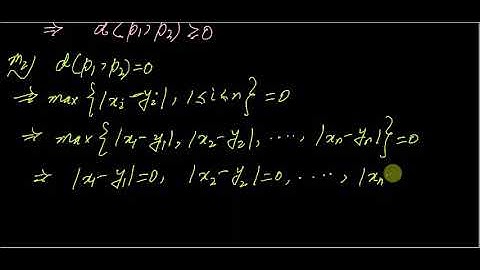 ⇒ d(p₁, p₂) ≥ 0
m₂) d(p₁, p₂) = 0
⇒ max{|xᵢ - yᵢ|, 1 ≤ i ≤ n} = 0
⇒ max{|x₁ - y₁|, |x₂ - y₂|, ...., |xₙ - yₙ|} = 0
⇒ |x₁ - y₁| = 0, |x₂ - y₂| = 0, ...., |xₙ